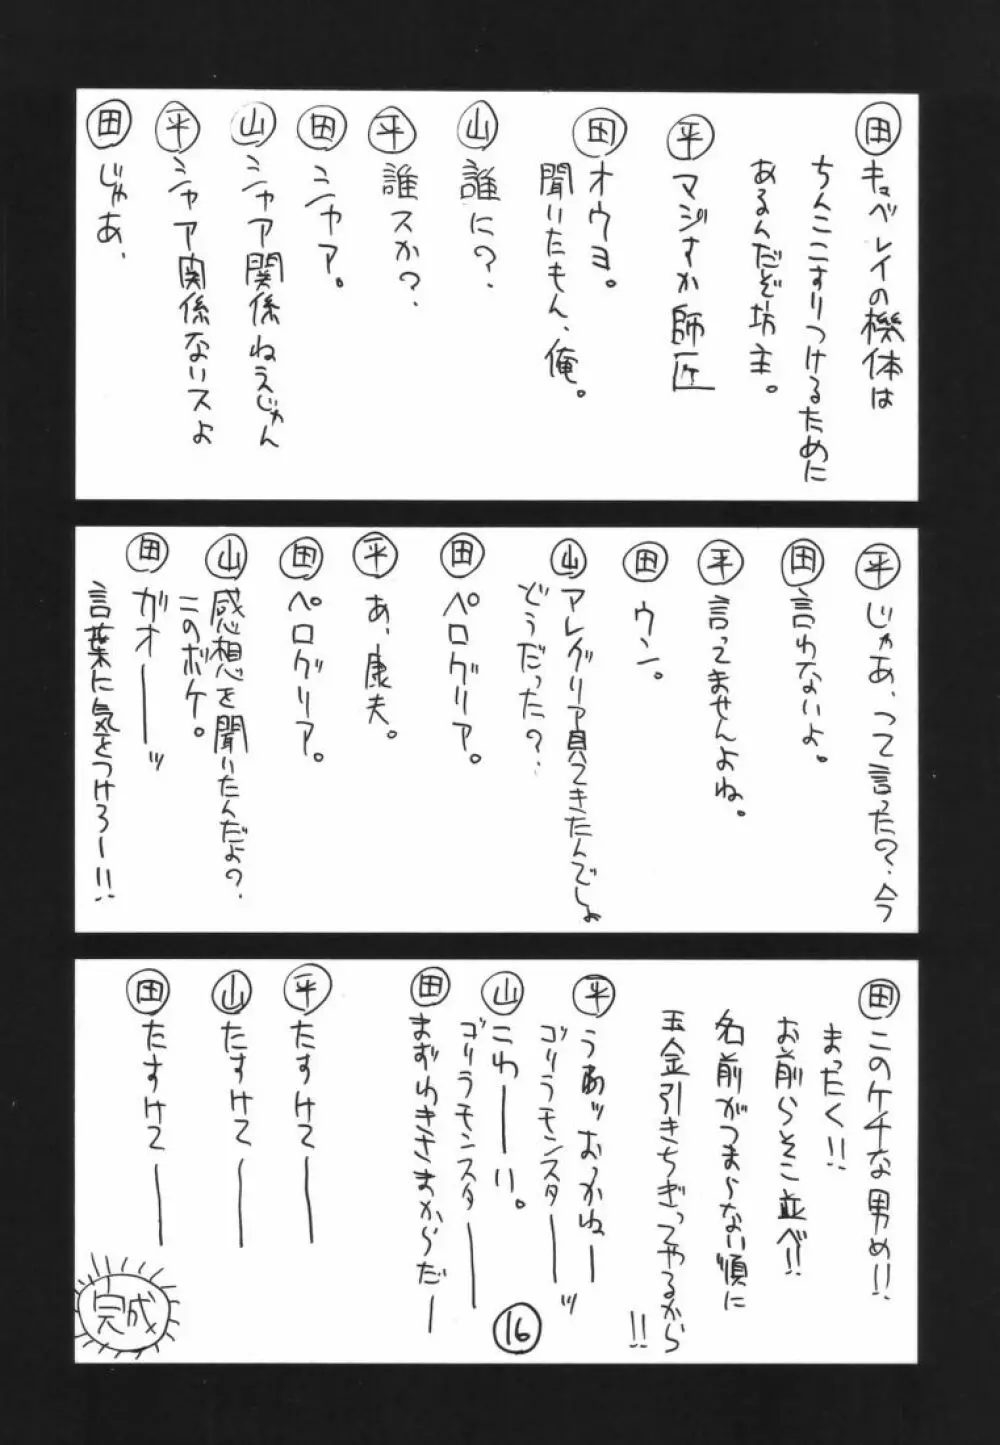 田 キュベレイの機体は
ちんここすりつけるために
あるんだぞ坊主。
平 マジすか師匠
田 オウヨ。
聞いたもん、俺。
山 誰に?
平 誰スか?
田 シャア。
山 シャア関係ねえじゃん
平 シャア関係ないスよ
田 じゃあ、
平 じゃあ、って言った?今
田 言わないよ。
平 言ってませんよね。
田 ウン。
山 アレグリア見てきたんでしょ
どうだった?
田 ペログリア。
平 あ、康夫。
田 ペログリア。
山 感想を聞いたんだよ?
このボケ。
田 ガオーーッ
言葉に気をつけろー!!
田 このケチな男め!!
まったく!!
お前らそこ並べ!!
名前がつまらない順に
玉金引きちぎってやるから!!
平 うあッおっかねー
ゴリラモンスターーッ
山 こわーーい。
ゴリラモンスターーー
田 まずわきさまからだー
平 たすけてーー
山 たすけてーー
田 たすけてーー
16
完成